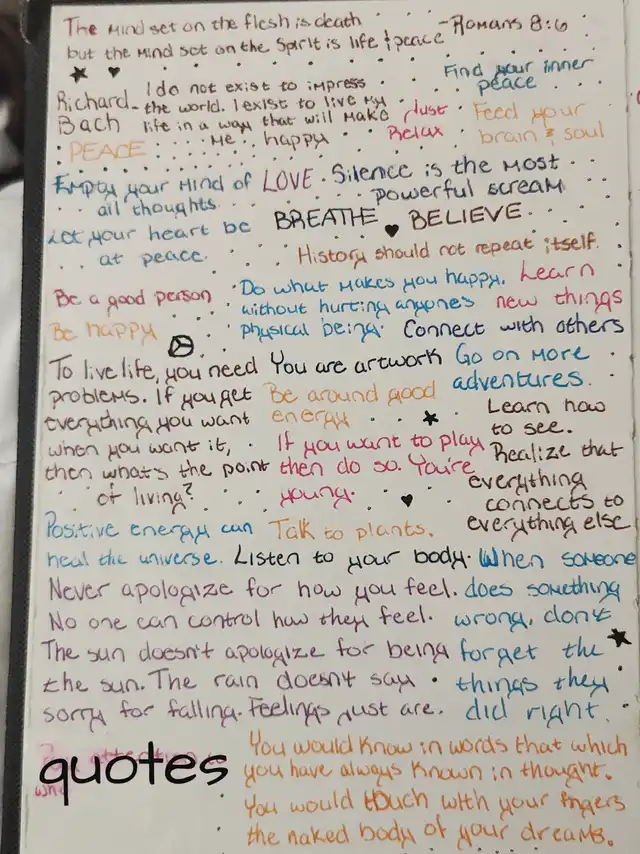 The mind set on the flesh is death -Romans 8:6
but the mind set on the Spirit is life & peace
Richard Bach - I do not exist to impress
the world. I exist to live my
life in a way that will make
me happy
Find your inner
peace
Just
Relax
Feed your
brain & soul
PEACE
Empty your mind of
all thoughts
Let your heart be
at peace.
LOVE
Silence is the most
powerful scream
BREATHE
BELIEVE
History should not repeat itself.
Be a good person
Be happy
Do what makes you happy,
without hurting anyone's
physical being.
Learn
new things
Connect with others
To live life, you need
problems. If you get
everything you want
when you want it,
then whats the point
of living?
You are artwork
Go on more
adventures.
Be around good
energy
If you want to play
then do so. You're
young.
Learn how
to see.
Realize that
everything
connects to
everything else
Positive energy can
heal the universe.
Talk to plants.
Listen to your body.
When someone
does something
wrong, don't
forget the
things they
did right.
Never apologize for how you feel.
No one can control how they feel.
The sun doesn't apologize for being
the sun. The rain doesn't say
sorry for falling. Feelings just are.
quotes
You would know in words that which
you have always known in thought.
You would touch with your fingers
the naked body of your dreams.